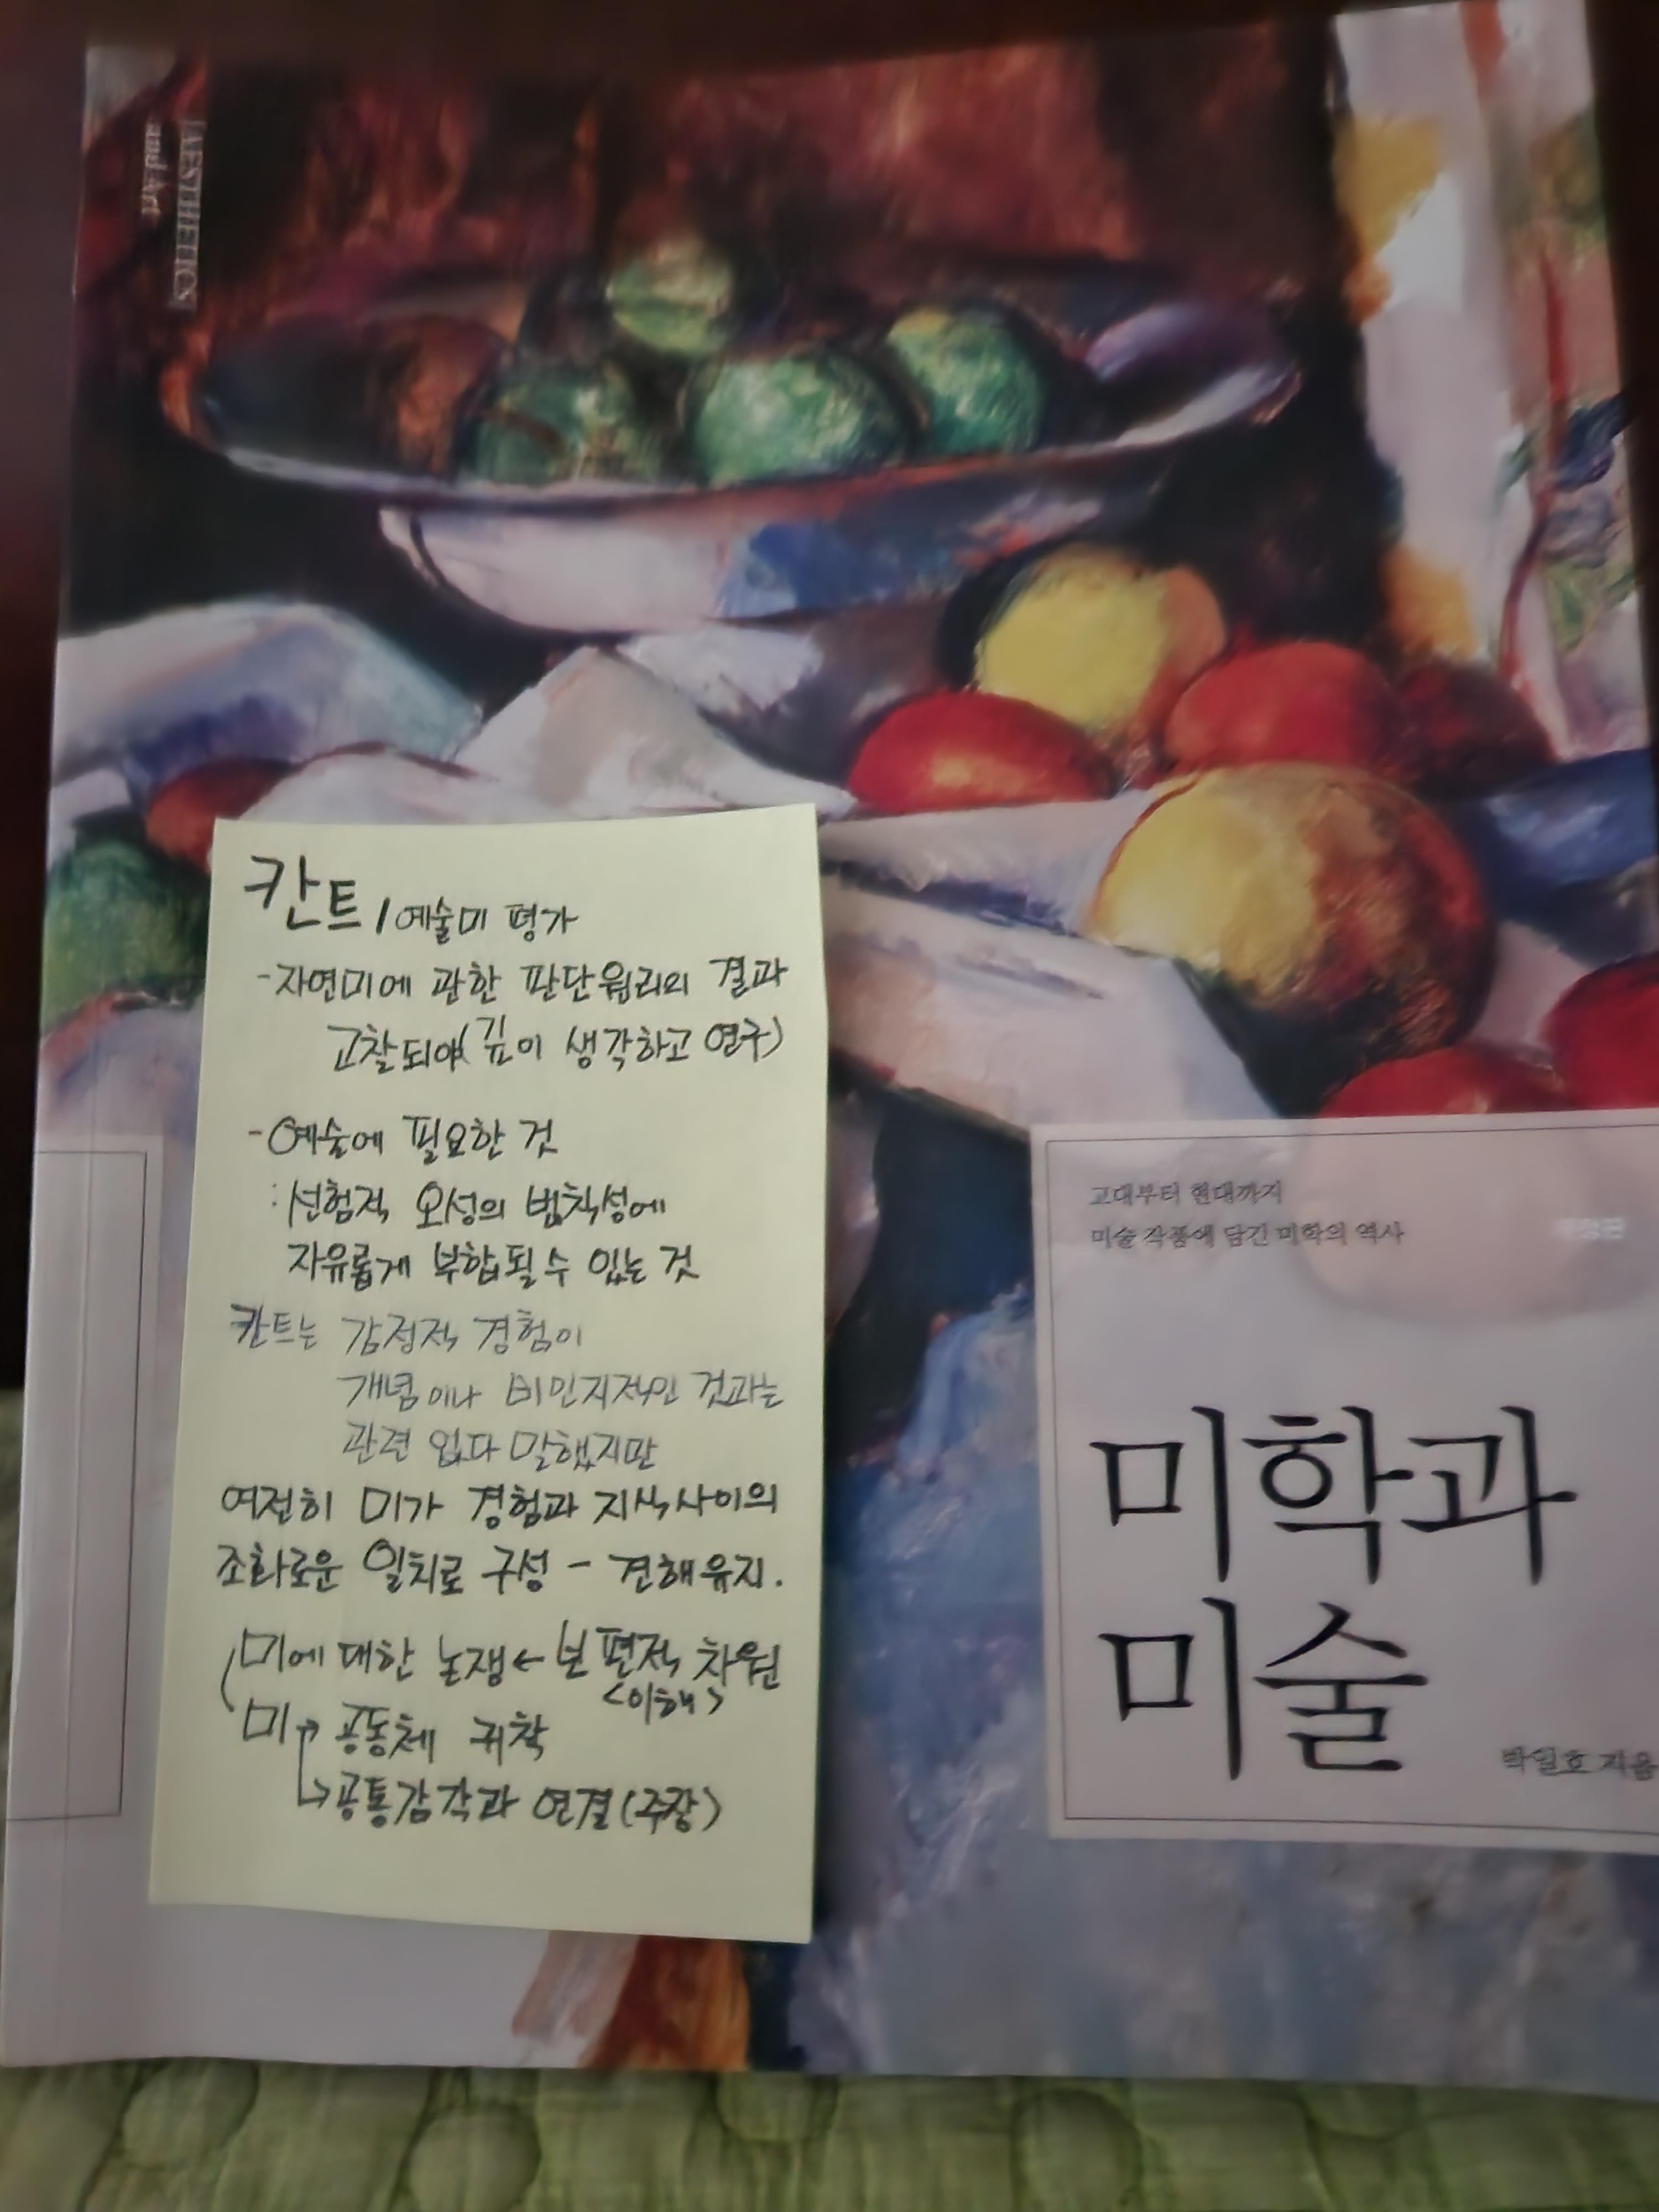 AESTHETICS
and Art
칸트 / 예술미 평가
- 자연미에 관한 판단원리의 결과
고찰되야(깊이 생각하고 연구)
- 예술에 필요한 것
: 선험적 오성의 법칙성에
자유롭게 부합될 수 있는 것
칸트는 감정적 경험이
개념이나 비인지적인 것과는
관련 없다 말했지만
여전히 미가 경험과 지식사이의
조화로운 일치로 구성 - 견해유지.
미에 대한 논쟁 ← 보편적 차원
<이해>
미 → 공동체 귀착
→ 공통감각과 연결 (주장)
고대부터 현대까지
미술 작품에 담긴 미학의 역사
미학과
미술
박일호 지음